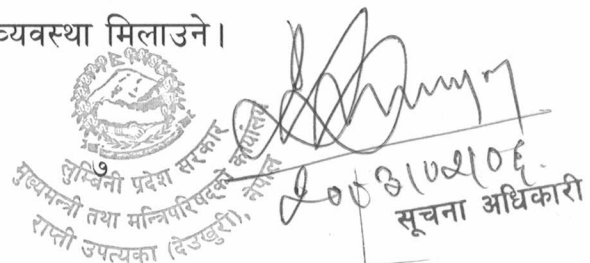 व्यवस्था मिलाउने।
७
लुम्बिनी प्रदेश सरकार
मुख्यमन्त्री तथा मन्त्रिपरिषद्को कार्यालय
राप्ती उपत्यका (देउखुरी), नेपाल
सूचना अधिकारी